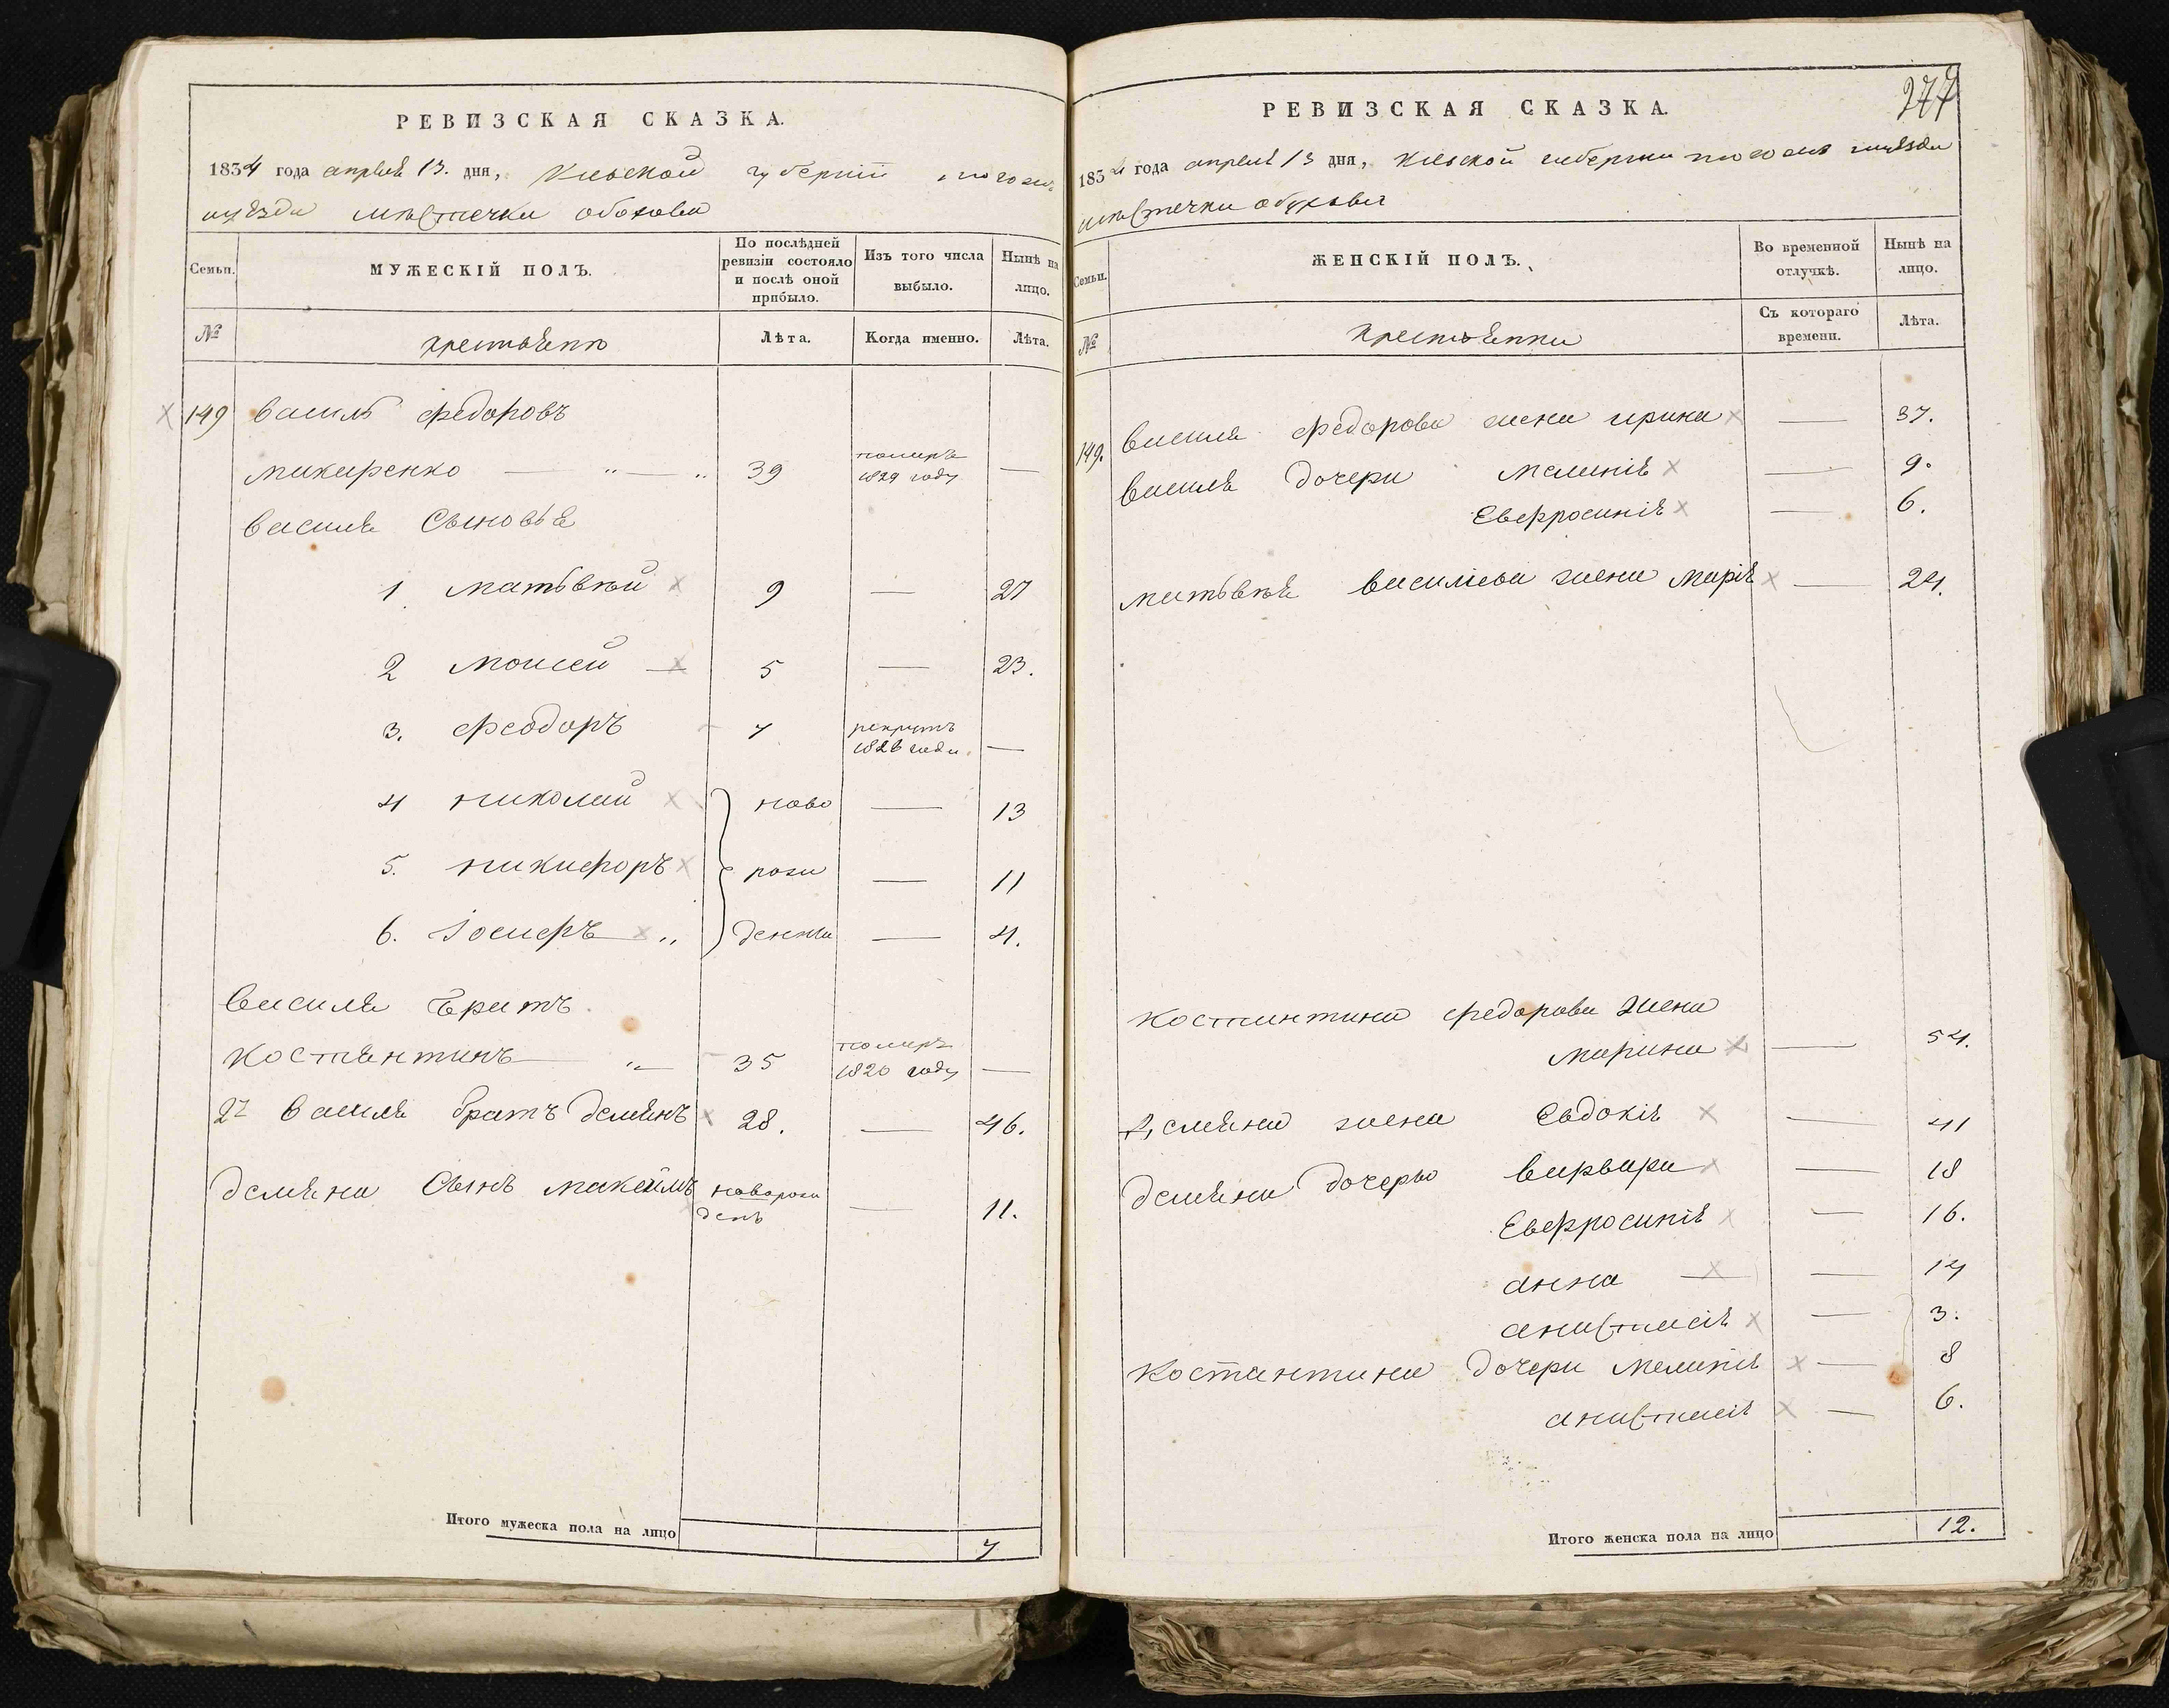 РЕВИЗСКАЯ СКАЗКА.
1834 года апреля 13. дня, Киевской губернїи тогожъ
уѣзда мѣстечка обохова
Семьи.
МУЖЕСКІЙ ПОЛЪ.
По послѣдней ревизіи состояло и послѣ оной прибыло.
Изъ того числа выбыло.
Нынѣ на лицо.
№
крестьѣнъ
Лѣта.
Когда именно.
Лѣта.
149 василь федоровъ
микиренко — „ — „ 39 помиръ 1829 году —
василя Сыновья
1 матьвѣй 9 — 27
2 моисей 5 — 23.
3. феодоръ 7 рекрутъ 1828 года. —
4 николай ново — 13
5. никифоръ рож — 11
6. Іосифъ „ денны — 4.
василя братъ
костянтинъ „ 35 помиръ 1820 году —
2й василя братъ демянъ 28. — 46.
демяна Сынъ максимъ новорож денъ — 11.
Итого мужеска пола на лицо 7
277
РЕВИЗСКАЯ СКАЗКА.
1834 года апреля 13 дня, киевской губернии тогожъ уѣзда
мѣстечка обухова
Семьи.
ЖЕНСКІЙ ПОЛЪ.
Во временной отлучкѣ.
Нынѣ на лицо.
№
крестьѣнки
Съ котораго времени.
Лѣта.
149. василя федорова жена ирина — 37.
василя дочери меланія — 9.
Евфросинія — 6.
матьвѣя василіева жена марія — 24.
костантина федорова жена
марина — 54.
Демяна жена Евдокія — 41
демяна дочерьи варвара — 18
Евфросинія — 16.
анна — 14
анастасія — 3.
костантина дочери меланія — 8
анастасія — 6.
Итого женска пола на лицо 12.